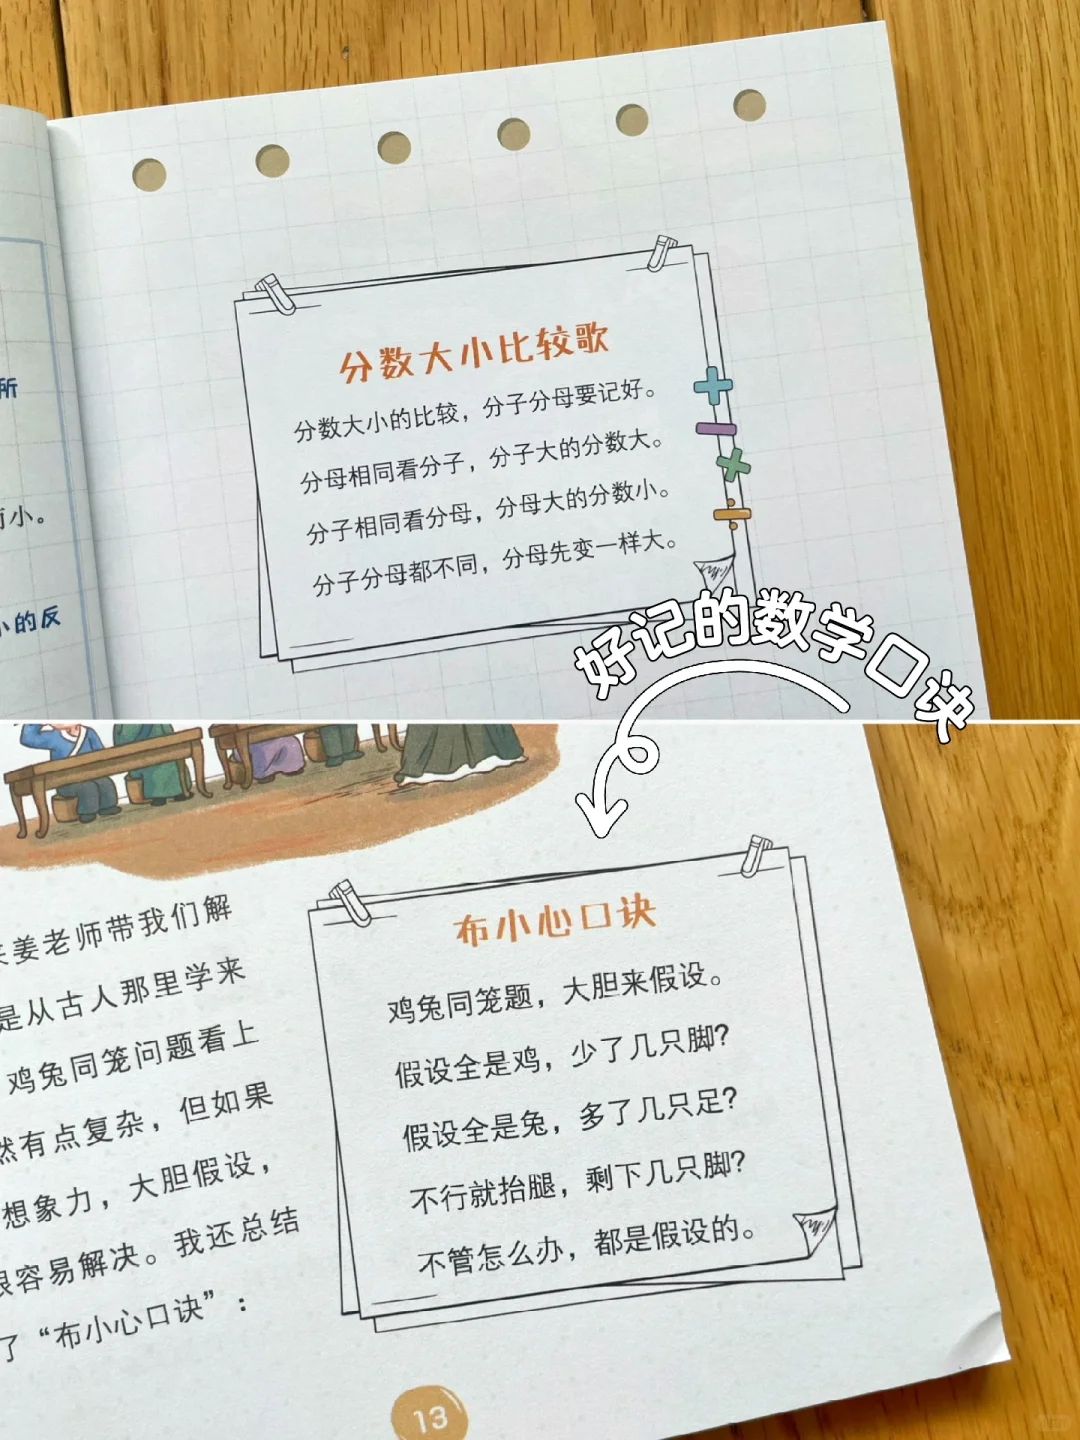 所
而小。
小的反
分数大小比较歌
分数大小的比较，分子分母要记好。
分母相同看分子，分子大的分数大。
分子相同看分母，分母大的分数小。
分子分母都不同，分母先变一样大。
好记的数学口诀
来姜老师带我们解
是从古人那里学来
鸡兔同笼问题看上
然有点复杂，但如果
想象力，大胆假设，
很容易解决。我还总结
了“布小心口诀”：
布小心口诀
鸡兔同笼题，大胆来假设。
假设全是鸡，少了几只脚？
假设全是兔，多了几只足？
不行就抬腿，剩下几只脚？
不管怎么办，都是假设的。
13